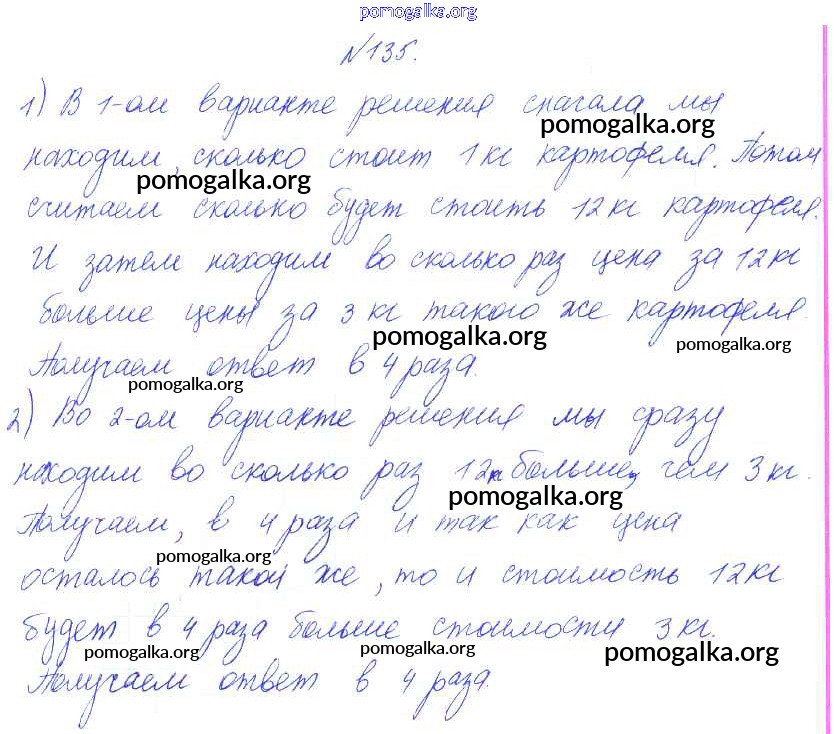 pomogalka.org
№135.
1) В 1-ом варианте решения сначала мы
pomogalka.org
находим, сколько стоит 1 кг картофеля. Потом
pomogalka.org
считаем сколько будет стоить 12 кг картофеля.
И затем находим во сколько раз цена за 12 кг
больше цены за 3 кг такого же картофеля.
pomogalka.org
pomogalka.org
Получаем ответ в 4 раза.
pomogalka.org
2) Во 2-ом варианте решения мы сразу
находим во сколько раз 12к больше, чем 3 кг.
pomogalka.org
Получаем, в 4 раза и так как цена
pomogalka.org
осталось такой же, то и стоимость 12 кг
будет в 4 раза больше стоимости 3 кг.
pomogalka.org
pomogalka.org
pomogalka.org
Получаем ответ в 4 раза.